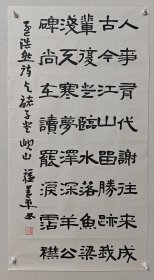 人事有代謝往來成
古今江山留勝跡我
輩復登臨水落魚梁
淺天寒夢澤深羊公
碑尚在讀罷淚霑襟
孟浩然詩与諸子登峴山